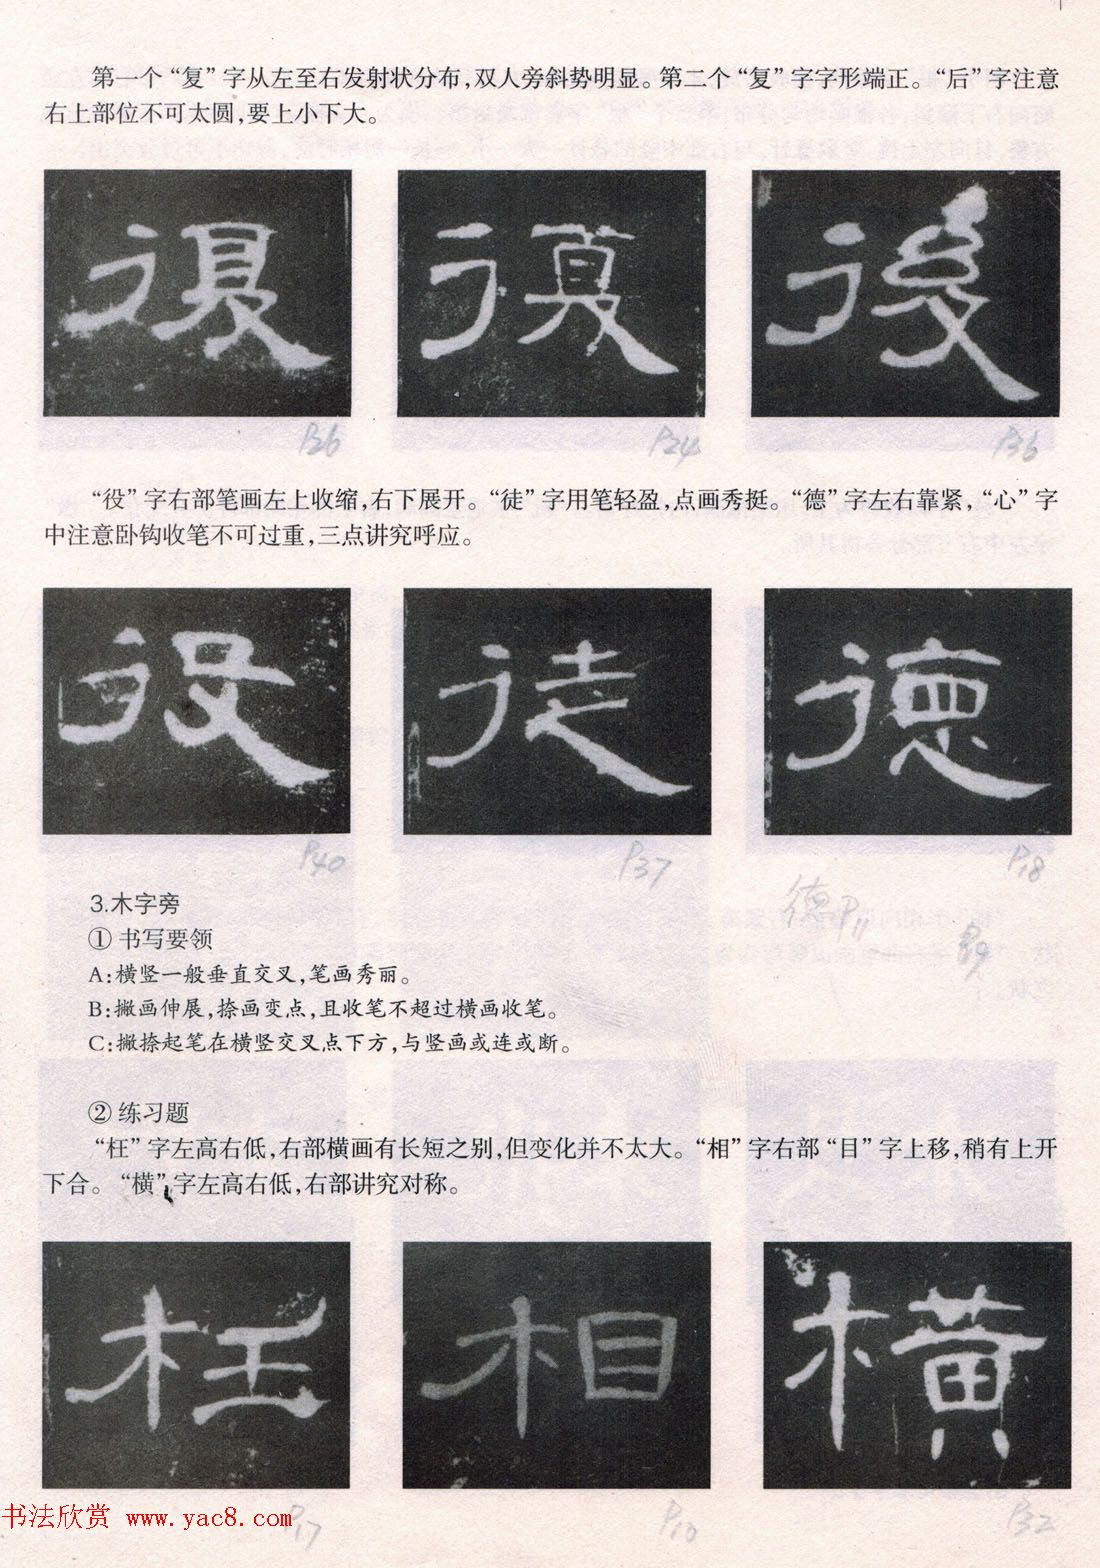 第一个“复”字从左至右发射状分布，双人旁斜势明显。第二个“复”字字形端正。“后”字注意
右上部位不可太圆，要上小下大。
復 復 後
P26 P24 P36
“役”字右部笔画左上收缩，右下展开。“徒”字用笔轻盈，点画秀挺。“德”字左右靠紧，“心”字
中注意卧钩收笔不可过重，三点讲究呼应。
役 徒 德
P40 P37 P18
德P11
P9
3.木字旁
① 书写要领
A:横竖一般垂直交叉，笔画秀丽。
B:撇画伸展，捺画变点，且收笔不超过横画收笔。
C:撇捺起笔在横竖交叉点下方，与竖画或连或断。
② 练习题
“枉”字左高右低，右部横画有长短之别，但变化并不太大。“相”字右部“目”字上移，稍有上开
下合。“横”字左高右低，右部讲究对称。
枉 相 橫
P17 P10 P32
书法欣赏 www.yac8.com